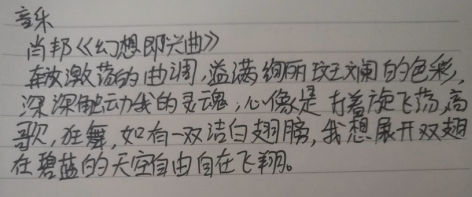 音乐
肖邦《幻想即兴曲》
奔放激荡的曲调,溢满绚丽斑斓的色彩,
深深触动我的灵魂,心像是打着旋飞荡,高
歌,狂舞,如有一双洁白翅膀,我想展开双翅
在碧蓝的天空自由自在飞翔。